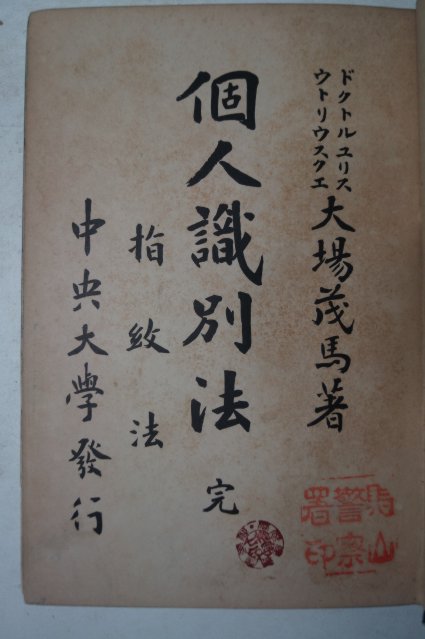 ドクトルユリス
ウトリウスクエ
大場茂馬著
個人識別法 完
指紋法
中央大學發行
警察
署印